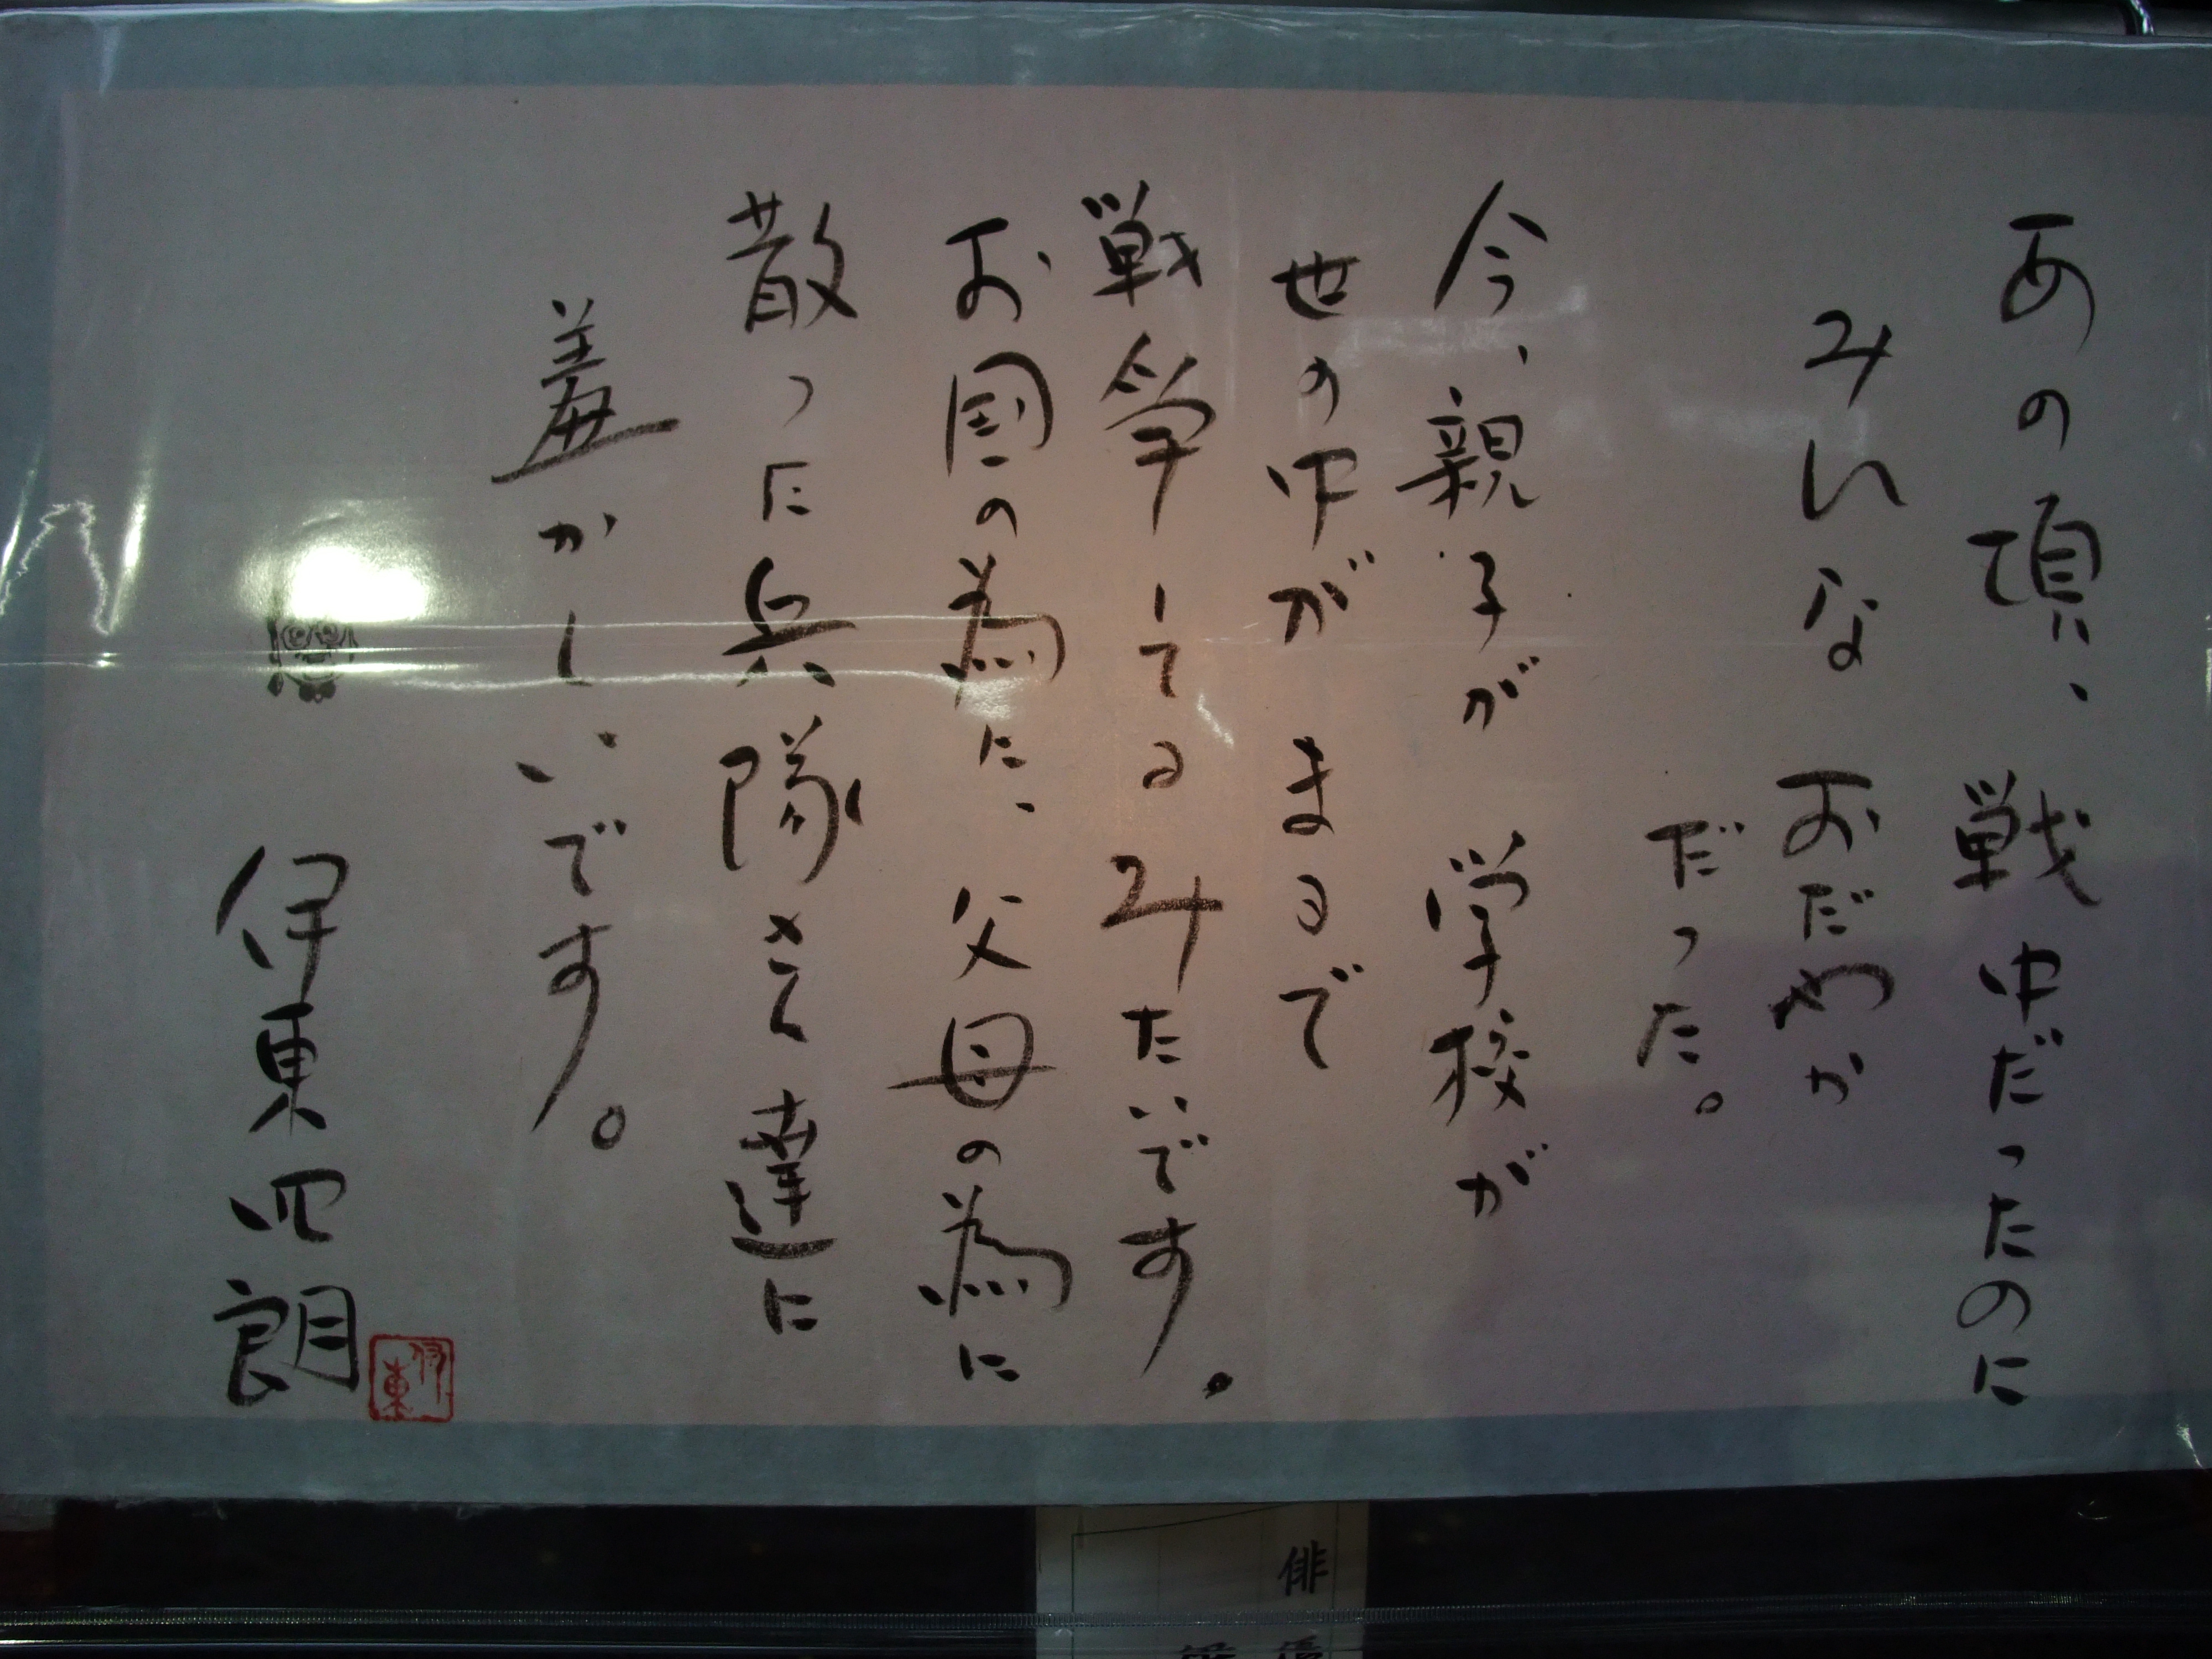 あの頃、戦中だったのに
みんなおだやか
だった。
今、親子が 学校が
世の中が まるで
戦争してるみたいです。
お国の為に、父母の為に
散った兵隊さん達に
羞かしいです。
伊東四朗
伊東
俳